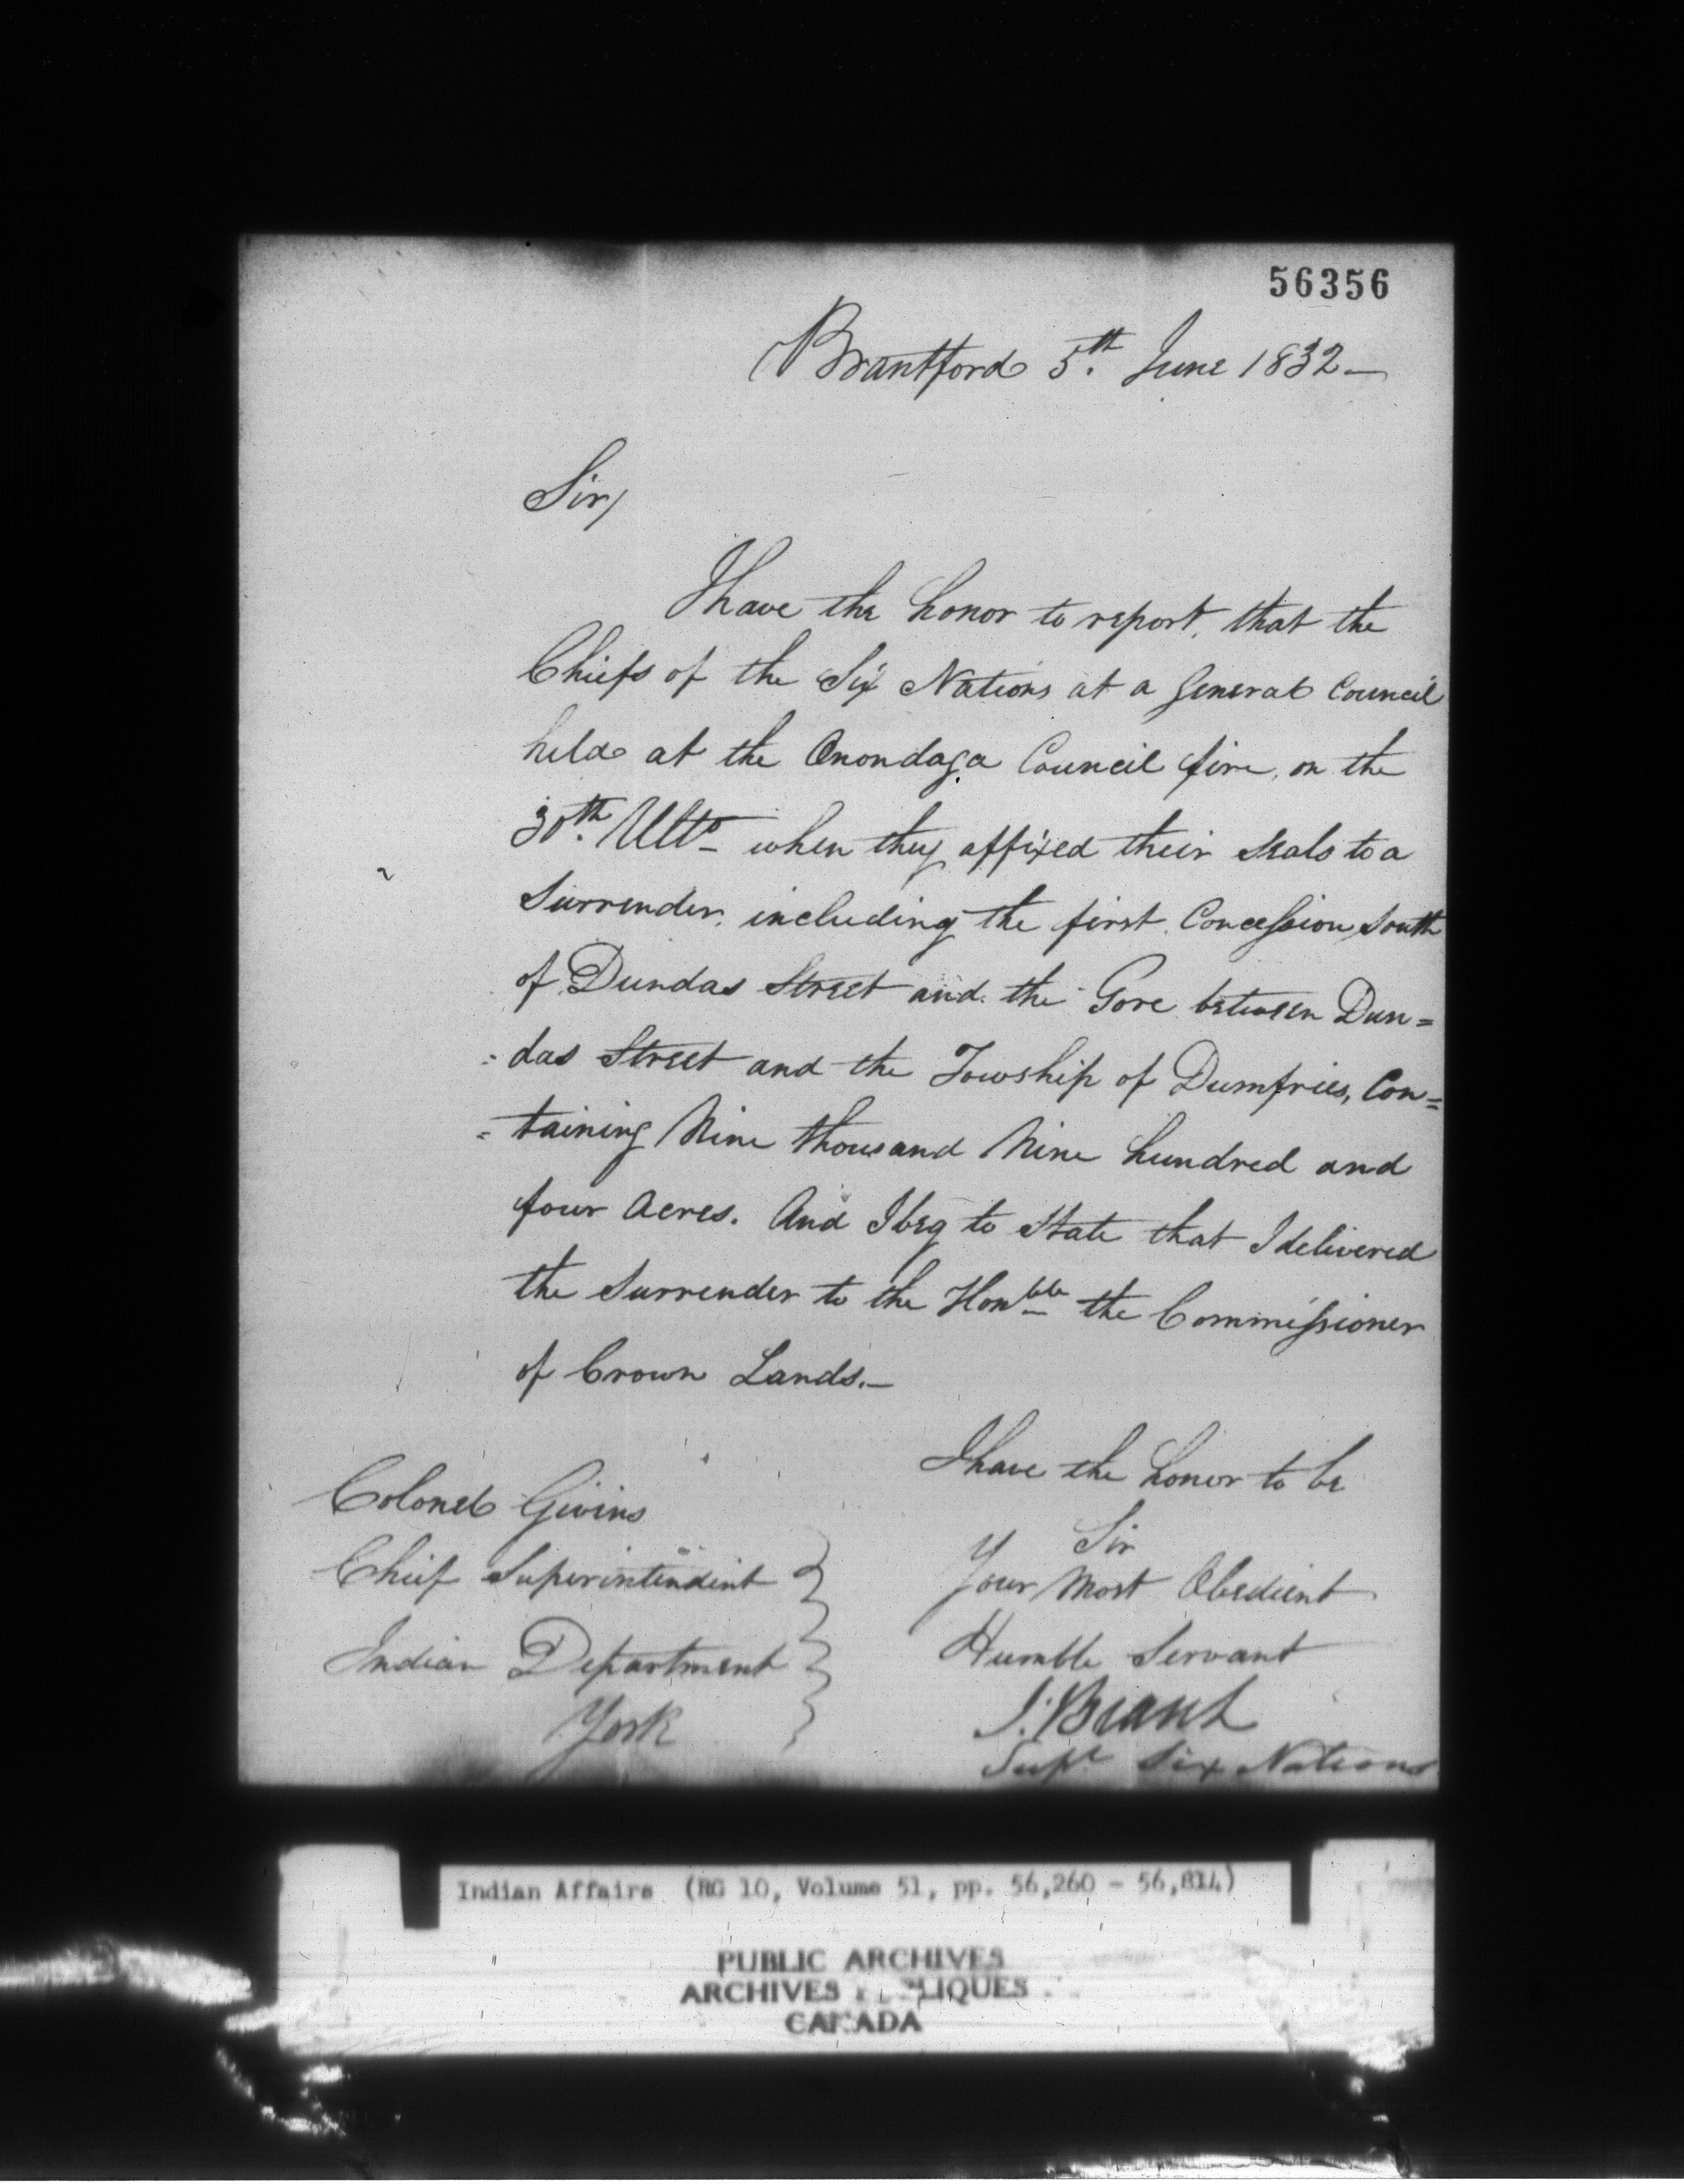 56356
Brantford 5th. June 1832 —
Sir,
I have the honor to report, that the
Chiefs of the Six Nations at a General Council
held at the Onondaga Council fire, on the
30th. Ulto_ when they affixed their Seals to a
Surrender, including the first Concession South
of Dundas Street and the Gore between Dun=
=das Street and the Towship of Dumfries, Con=
=taining Nine thousand Nine hundred and
four Acres. And I beg to State that I delivered
the Surrender to the Honble the Commissioner
of Crown Lands.—
I have the honor to be
Sir
Your Most Obedient
Humble Servant
J. Brant
Supt Six Nations
Colonel Givins
Chief Superintendent
Indian Department
York
Indian Affairs (RG 10, Volume 51, pp. 56,260 - 56,814)
PUBLIC ARCHIVES
ARCHIVES
CANADA